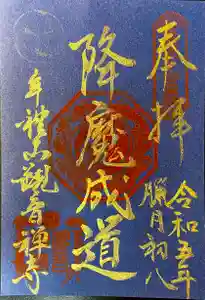 奉拝
令和五年
臘月初八
降魔成道
牟礼山観音禅寺